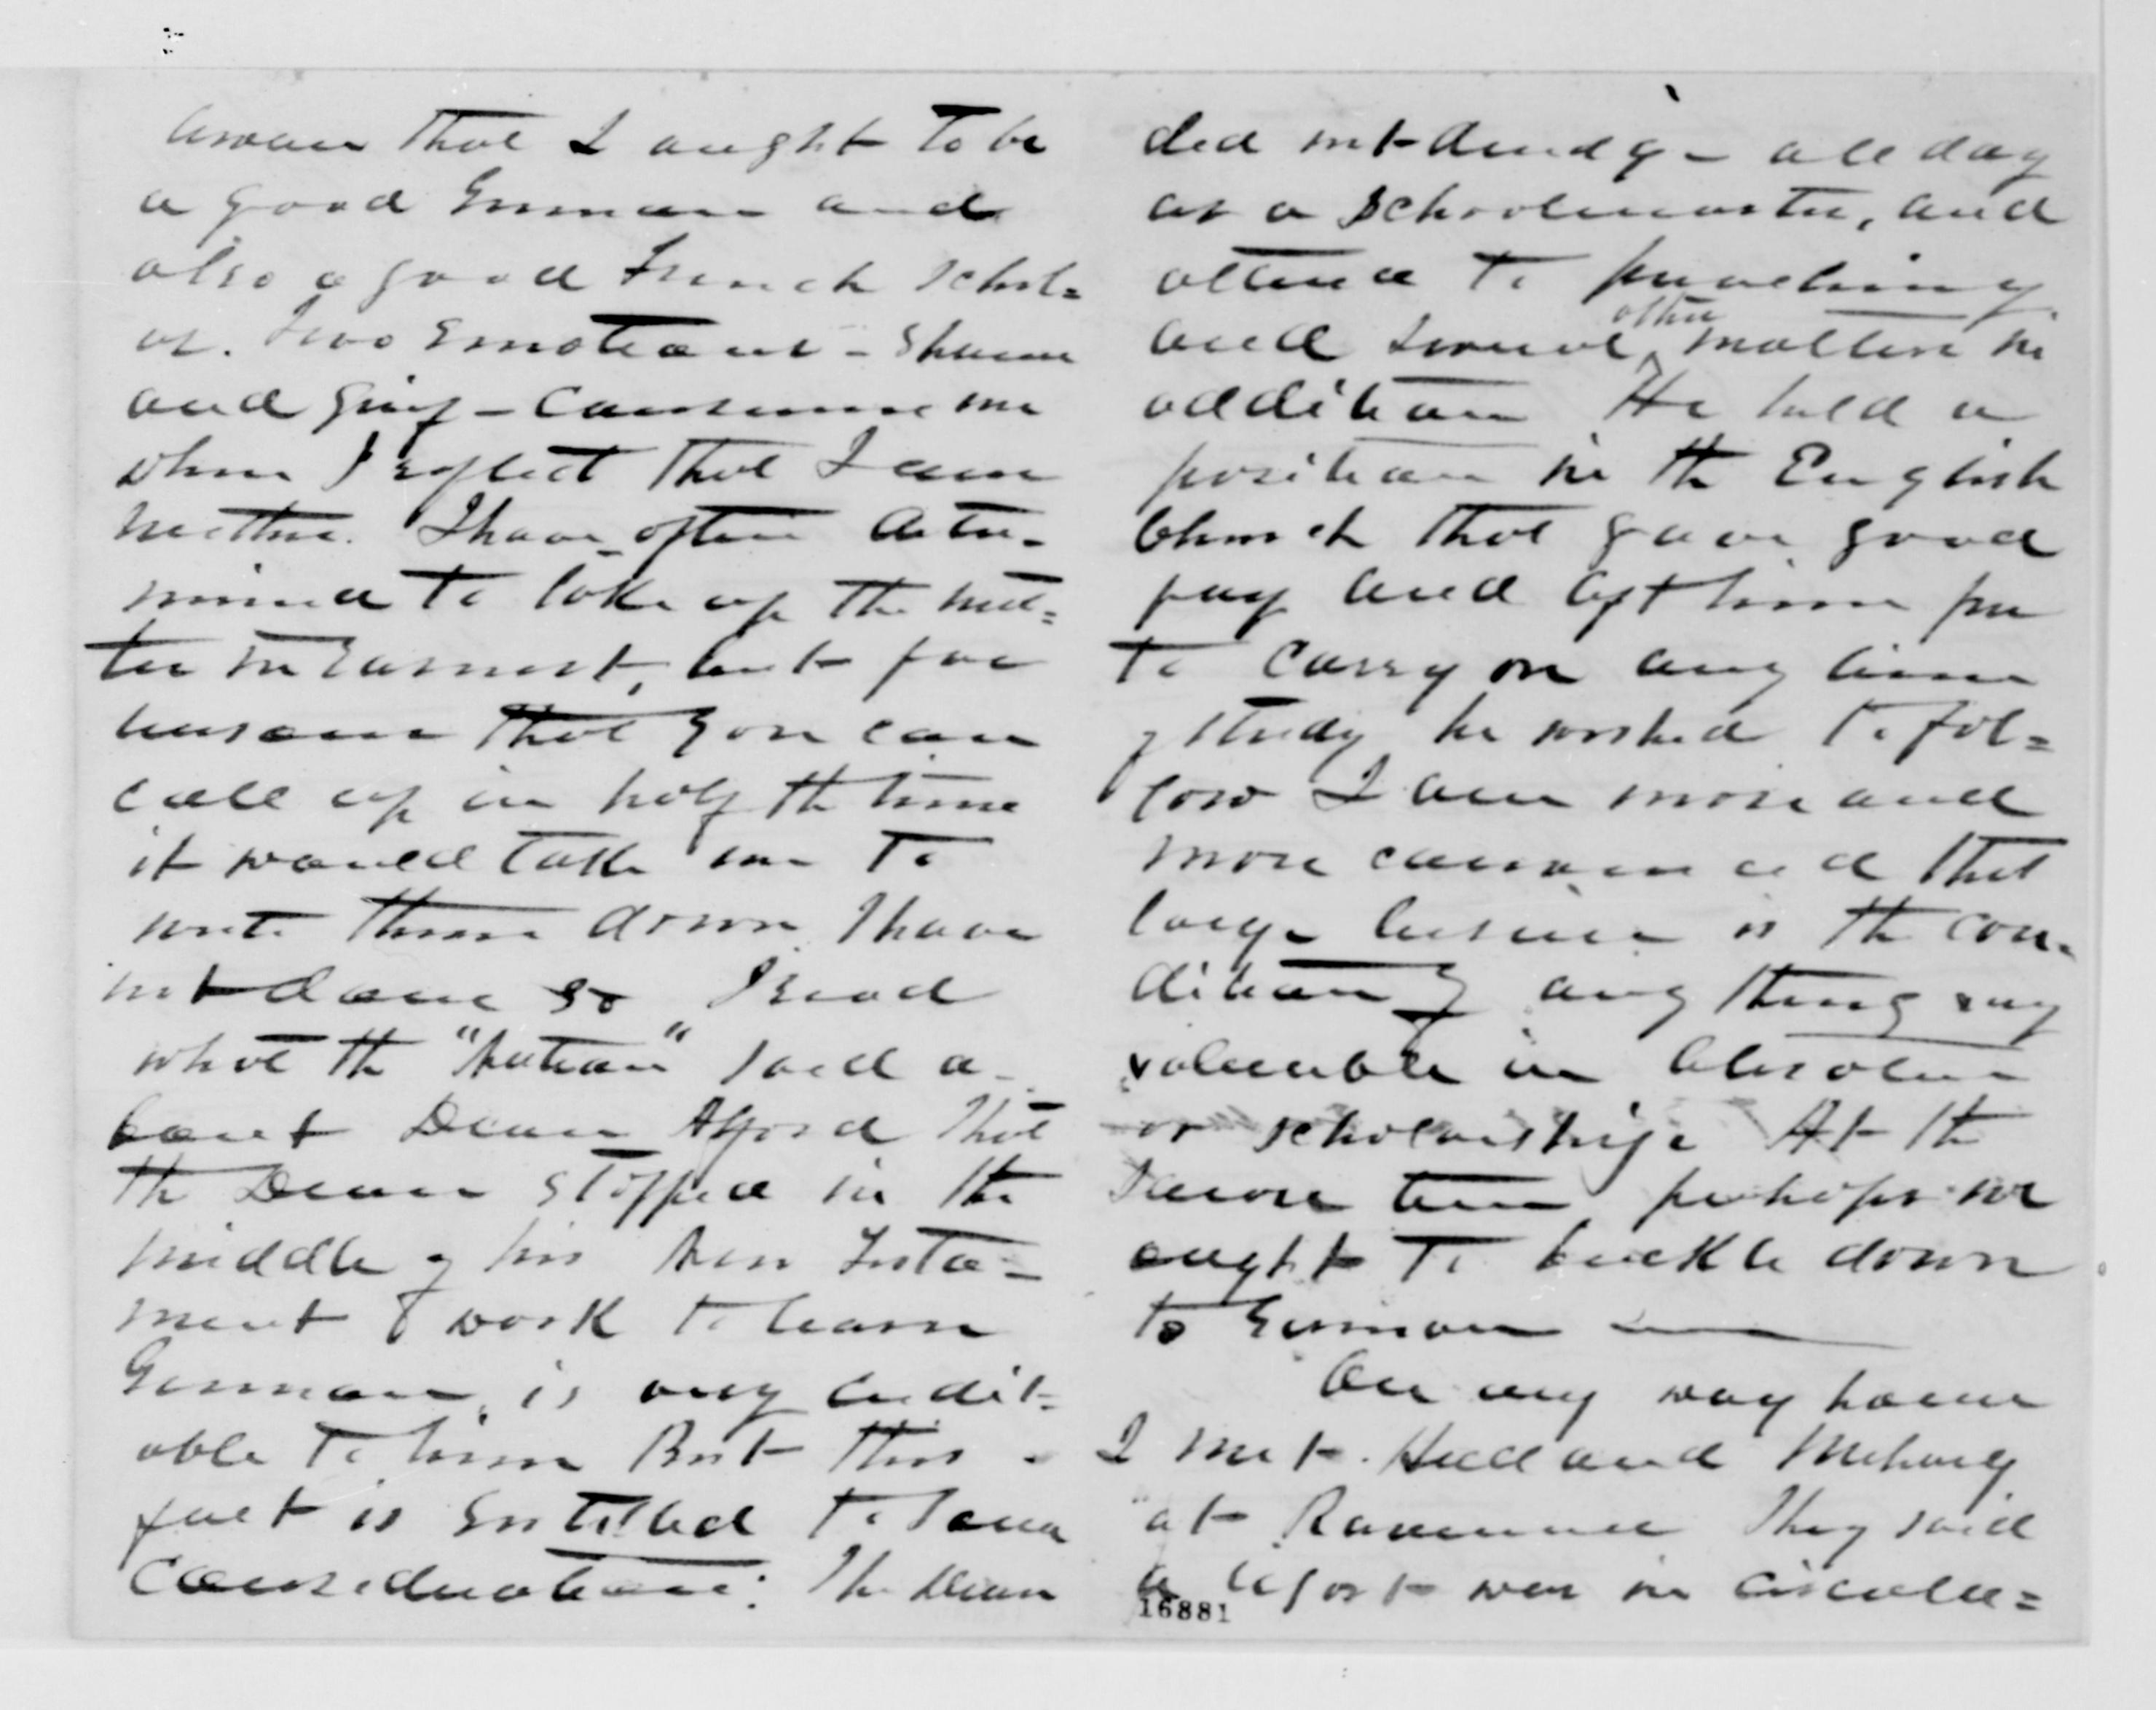 aware that I aught to be
a good German and
also a good French schol=
ar. Two Emotions - Shame
and grief - consume me
when I reflect that I am
neither. I have often deter-
mined to take up the mat=
ter in Earnest, but for
reasons that you can
call up in half the time
it would take me to
write them down I have
not done so I read
what the "Nation" said a-
bout Dean Alford That
the Dean stopped in the
middle of his New Testa-
ment work to learn
German, is very credit-
able to him But this
fact is Entitled to some
consideration: The Dean
did not drudge all day
as a schoolmaster, and
attend to preaching
and several other matters in
addition He held a
position in the English
Church that gave good
pay and left him free
to carry on any line
of study he wished to fol=
low I am more and
more convinced that
large leisure is the con-
dition of any thing very
valuable in
or scholarship At the
same time perhaps we
ought to buckle down
to German
On my way home
I met Hall and
at Ravenna They said
a report was in circula=
16881